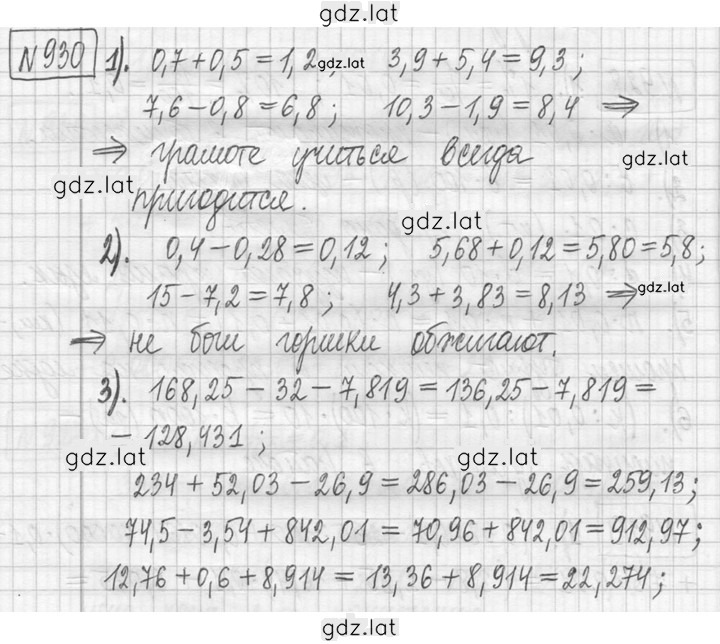 gdz.lat
№930 1). 0,7+0,5=1,2 gdz.lat; 3,9+5,4=9,3;
7,6-0,8=6,8; 10,3-1,9=8,4 ⇒
⇒ грамоте учиться всегда
gdz.lat
gdz.lat
пригодится.
gdz.lat
2). 0,4-0,28=0,12; 5,68+0,12=5,80=5,8;
15-7,2=7,8; 4,3+3,83=8,13 ⇒ gdz.lat
⇒ не боги горшки обжигают.
3). 168,25-32-7,819=136,25-7,819=
-128,431;
gdz.lat gdz.lat
234+52,03-26,9=286,03-26,9=259,13;
74,5-3,54+842,01=70,96+842,01=912,97;
12,76+0,6+8,914=13,36+8,914=22,274;
gdz.lat